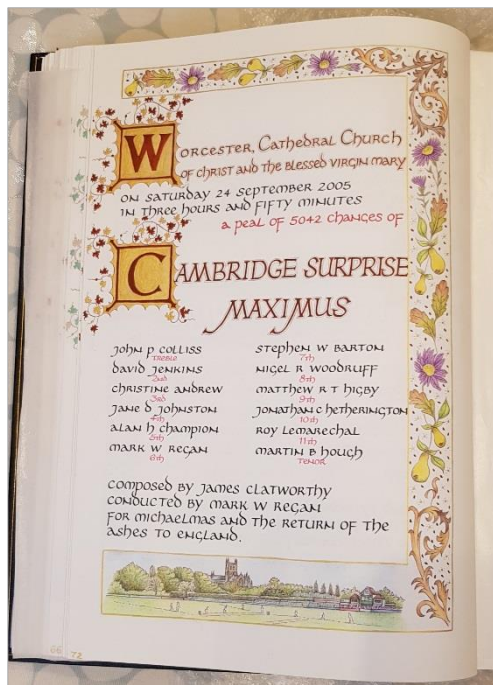 Worcester, Cathedral Church
of Christ and the Blessed Virgin Mary
on Saturday 24 September 2005
in three hours and fifty minutes
a peal of 5042 changes of
CAMBRIDGE SURPRISE
MAXIMUS
John P Colliss
Treble
David Jenkins
2nd
Christine Andrew
3rd
Jane D Johnston
4th
Alan H Champion
5th
Mark W Regan
6th
Stephen W Barton
7th
Nigel R Woodruff
8th
Matthew R T Higby
9th
Jonathan C Hetherington
10th
Roy LeMarechal
11th
Martin B Hough
Tenor
Composed by James Clatworthy
Conducted by Mark W Regan
For Michaelmas and the return of the
Ashes to England.
66 72